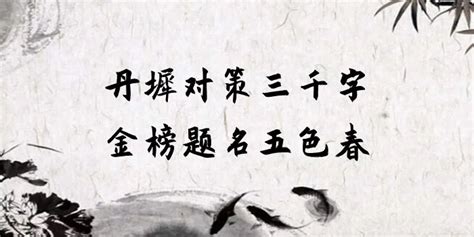 丹墀对策三千字
金榜题名五色春